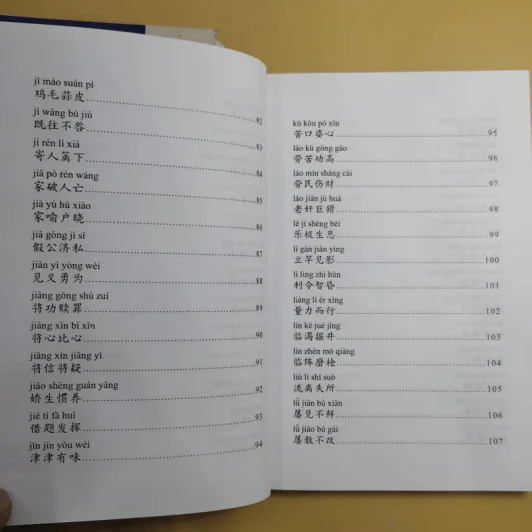 jī máo suàn pí
鸡毛蒜皮 82
jì wǎng bú jiù
既往不咎 83
jì rén lí xià
寄人篱下 84
jiā pò rén wáng
家破人亡 85
jiā yù hù xiǎo
家喻户晓 86
jiǎ gōng jì sī
假公济私 87
jiàn yì yǒng wéi
见义勇为 88
jiāng gōng shú zuì
将功赎罪 89
jiāng xīn bǐ xīn
将心比心 90
jiāng xìn jiāng yí
将信将疑 91
jiāo shēng guàn yǎng
娇生惯养 92
jiè tí fā huī
借题发挥 93
jīn jīn yǒu wèi
津津有味 94
kǔ kǒu pó xīn
苦口婆心 95
láo kǔ gōng gāo
劳苦功高 96
láo mín shāng cái
劳民伤财 97
lǎo jiān jù huá
老奸巨猾 98
lè jí shēng bēi
乐极生悲 99
lì gān jiàn yǐng
立竿见影 100
lì lìng zhì hūn
利令智昏 101
liàng lì ér xíng
量力而行 102
lín kě jué jǐng
临渴掘井 103
lín zhèn mó qiāng
临阵磨枪 104
liú lí shī suǒ
流离失所 105
lǚ jiàn bù xiān
屡见不鲜 106
lǚ jiào bù gǎi
屡教不改 107